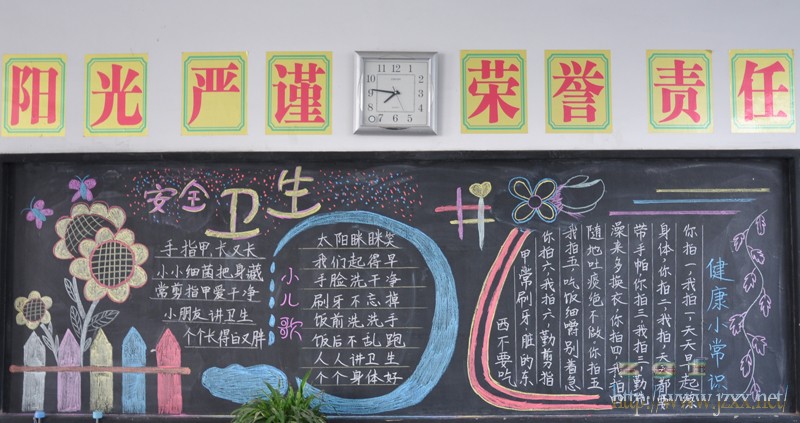 阳光 严谨 荣誉 责任
安全卫生
手指甲,长又长
小小细菌把身藏
常剪指甲爱干净
小朋友讲卫生
个个长得白又胖
小儿歌
太阳眯眯笑
我们起得早
手脸洗干净
刷牙不忘掉
饭前洗洗手
饭后不乱跑
人人讲卫生
个个身体好
健康小常识
你拍一,我拍一,天天早起练
身体,你拍二,我拍二,天天都要
带手帕,你拍三,我拍三,
澡来多换衣,你拍四,我拍
随地吐痰绝不做,你拍五
我拍五,吃饭细嚼别着急
你拍六,我拍六,勤剪指
甲常刷牙,脏的东
西不要吃
http://www.jzxx.net